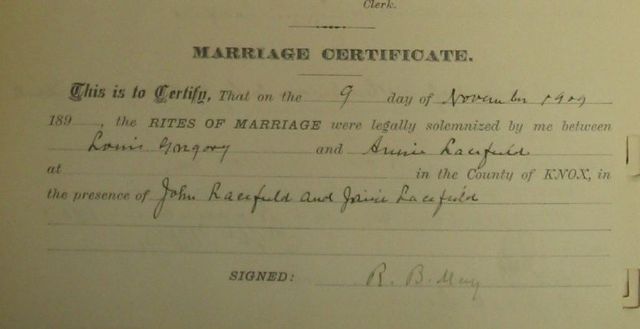 Clerk.
MARRIAGE CERTIFICATE.
This is to Certify, That on the 9 day of November 1909
189 , the RITES OF MARRIAGE were legally solemnized by me between
Louis Gregory and Annie Lacefield
at in the County of KNOX, in
the presence of John Lacefield and Janie Lacefield
SIGNED: R. B. May